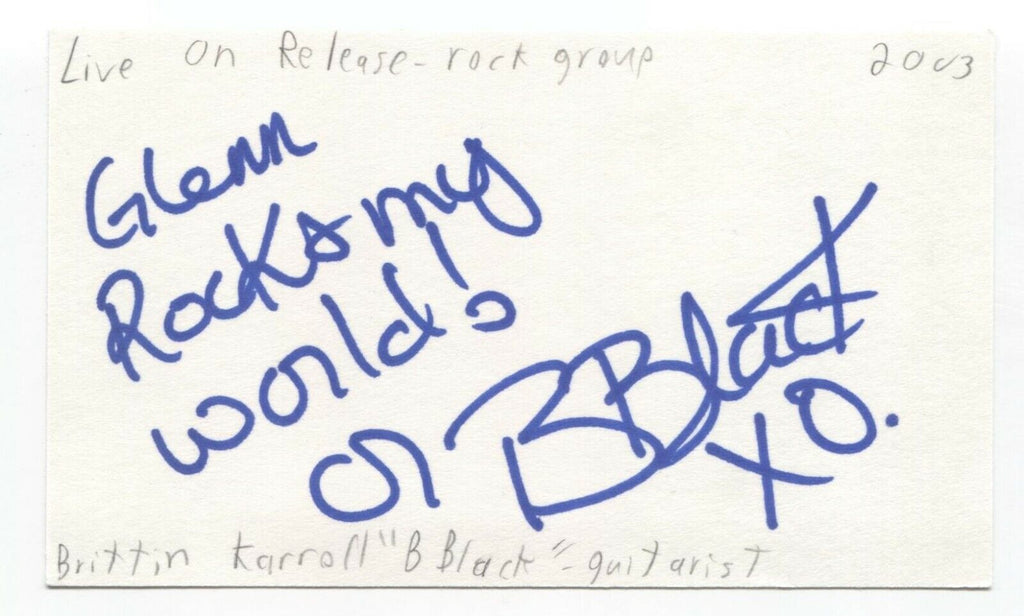 Live on Release - rock group 2003
Glenn
Rocks my
world!
on BBlack
XO.
Brittin Karroll "B Black" - guitarist